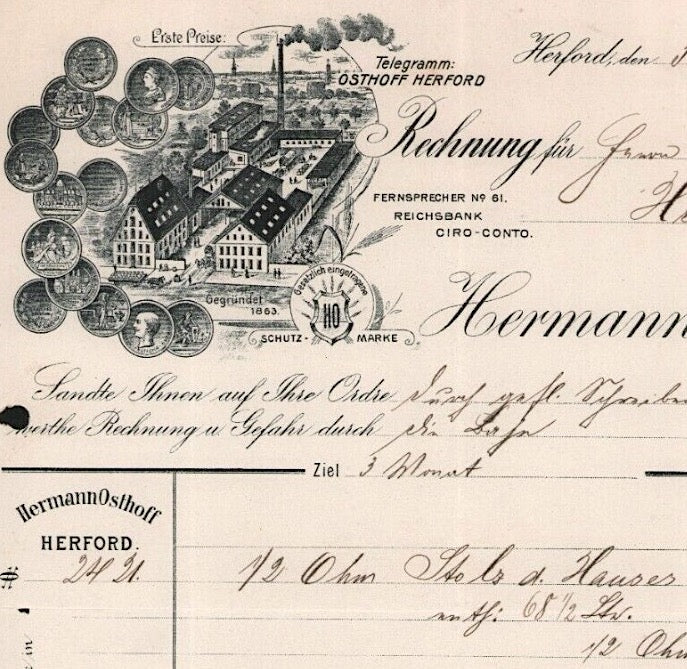 Erste Preise:
Telegramm:
OSTHOFF HERFORD
Herford, den 3
Rechnung für Herrn
FERNSPRECHER Nº 61.
REICHSBANK
CIRO-CONTO.
Gegründet
1863.
Gesetzlich eingetragene
HO
SCHUTZ-MARKE
Hermann
Sandte Ihnen auf Ihre Ordre durch gefl. Schreiben
werthe Rechnung u Gefahr durch die Bahn
Ziel 3 Monat
Hermann Osthoff
HERFORD.
2421.
1/2 Ohm Stolz d. Hauses
enth: 68 1/2 Ltr.
1/2 Ohm